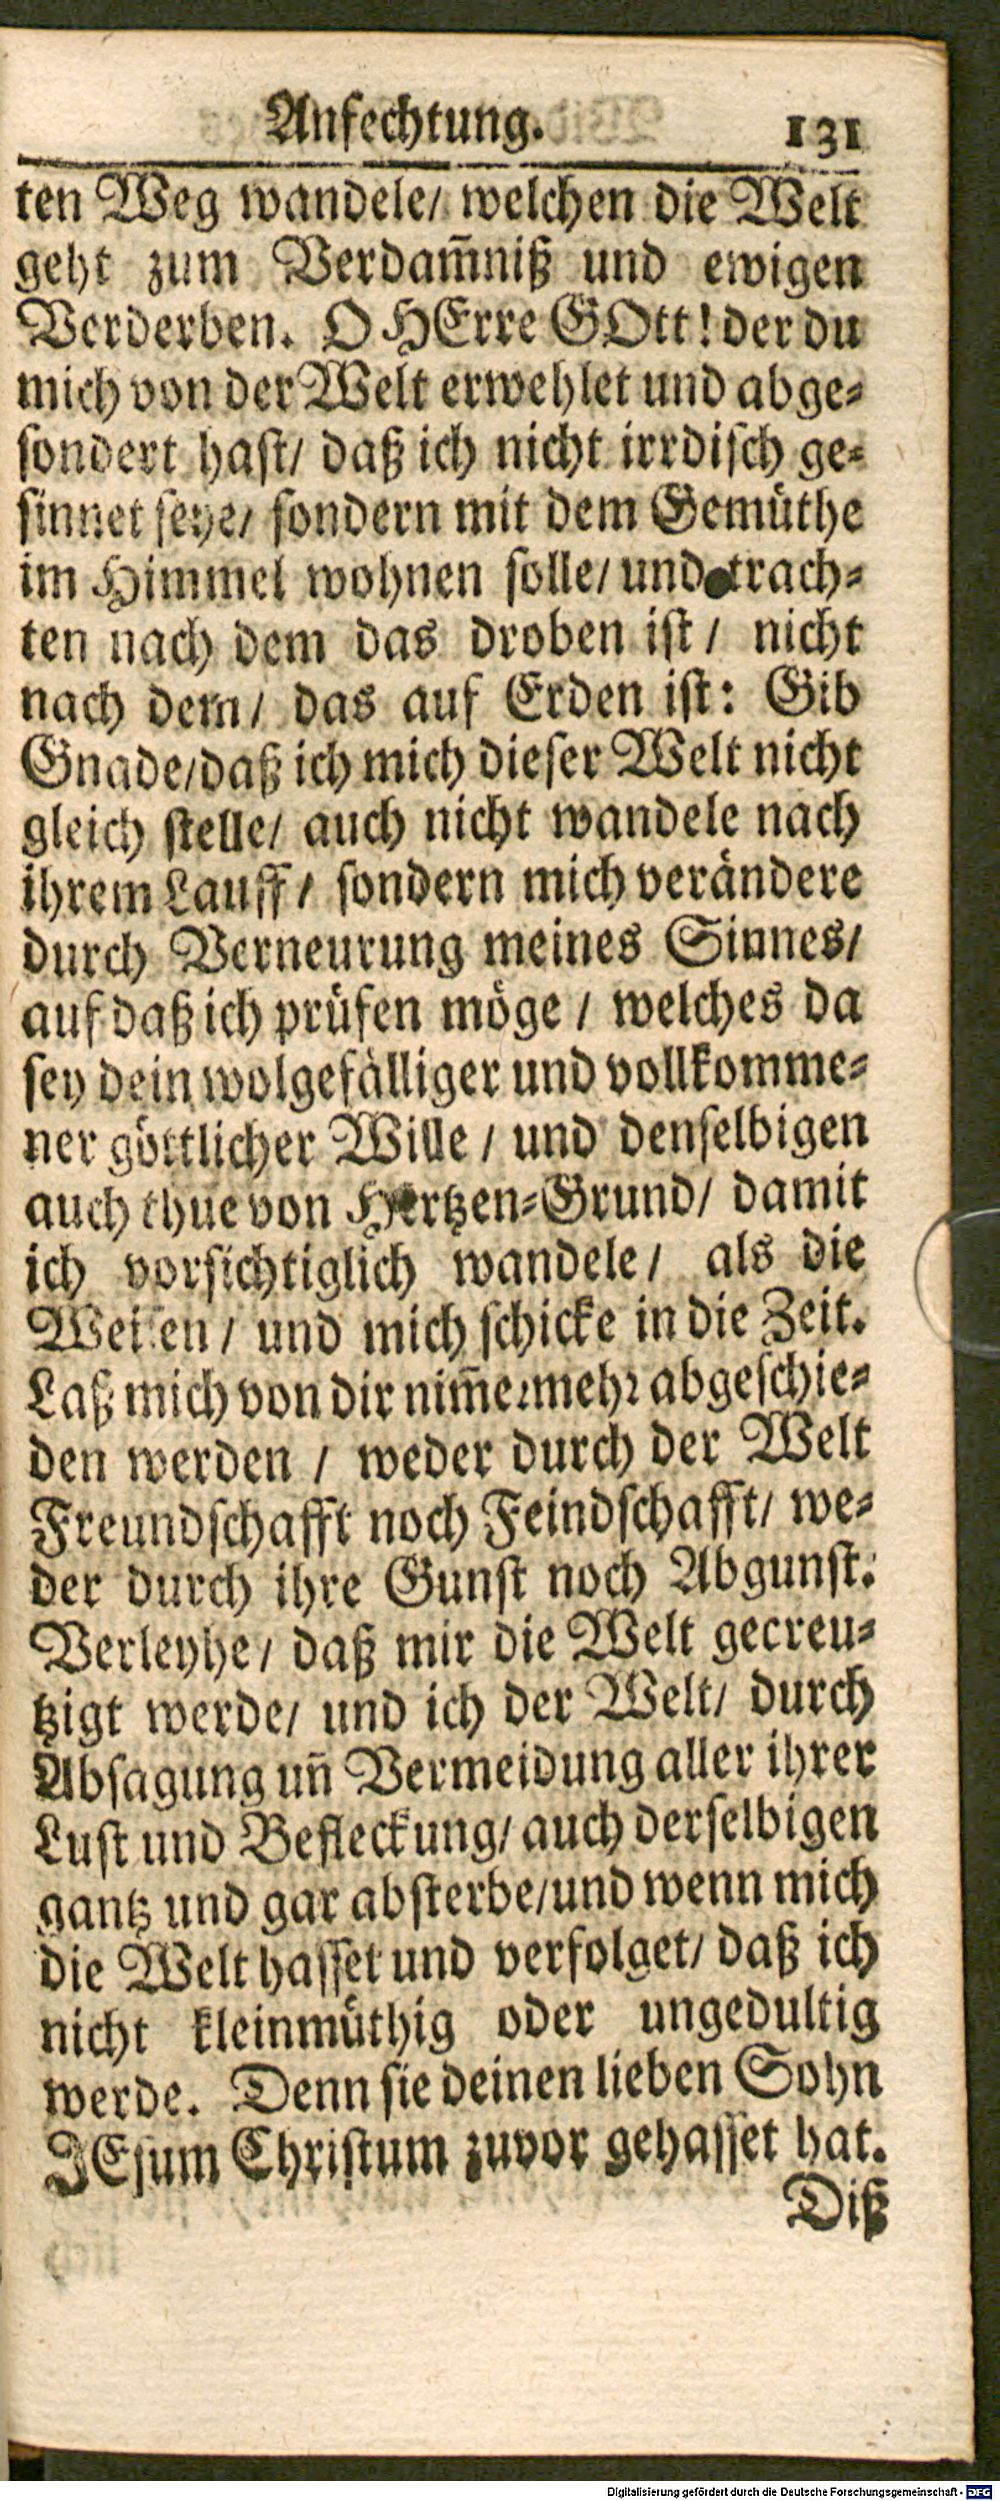 Anfechtung. 131
ten Weg wandele/ welchen die Welt
geht zum Verdam̃niß und ewigen
Verderben. O HErre GOtt! der du
mich von der Welt erwehlet und abge⸗
sondert hast/ daß ich nicht irrdisch ge⸗
sinnet seye/ sondern mit dem Gemüthe
im Himmel wohnen solle/ und trach⸗
ten nach dem das droben ist / nicht
nach dem/ das auf Erden ist: Gib
Gnade/daß ich mich dieser Welt nicht
gleich stelle/ auch nicht wandele nach
ihrem Lauff / sondern mich verändere
durch Verneurung meines Sinnes/
auf daß ich prüfen möge / welches da
sey dein wolgefälliger und vollkomme⸗
ner göttlicher Wille / und denselbigen
auch thue von Hertzen⸗Grund/ damit
ich vorsichtiglich wandele/ als die
Weisen / und mich schicke in die Zeit.
Laß mich von dir nim̃ermehr abgeschie⸗
den werden / weder durch der Welt
Freundschafft noch Feindschafft/ we⸗
der durch ihre Gunst noch Abgunst.
Verleyhe/ daß mir die Welt gecreu⸗
tzigt werde/ und ich der Welt/ durch
Absagung uñ Vermeidung aller ihrer
Lust und Befleckung/ auch derselbigen
gantz und gar absterbe/und wenn mich
die Welt hasset und verfolget/ daß ich
nicht kleinmüthig oder ungedultig
werde. Denn sie deinen lieben Sohn
JEsum Christum zuvor gehasset hat.
Diß
Digitalisierung gefördert durch die Deutsche Forschungsgemeinschaft - DFG